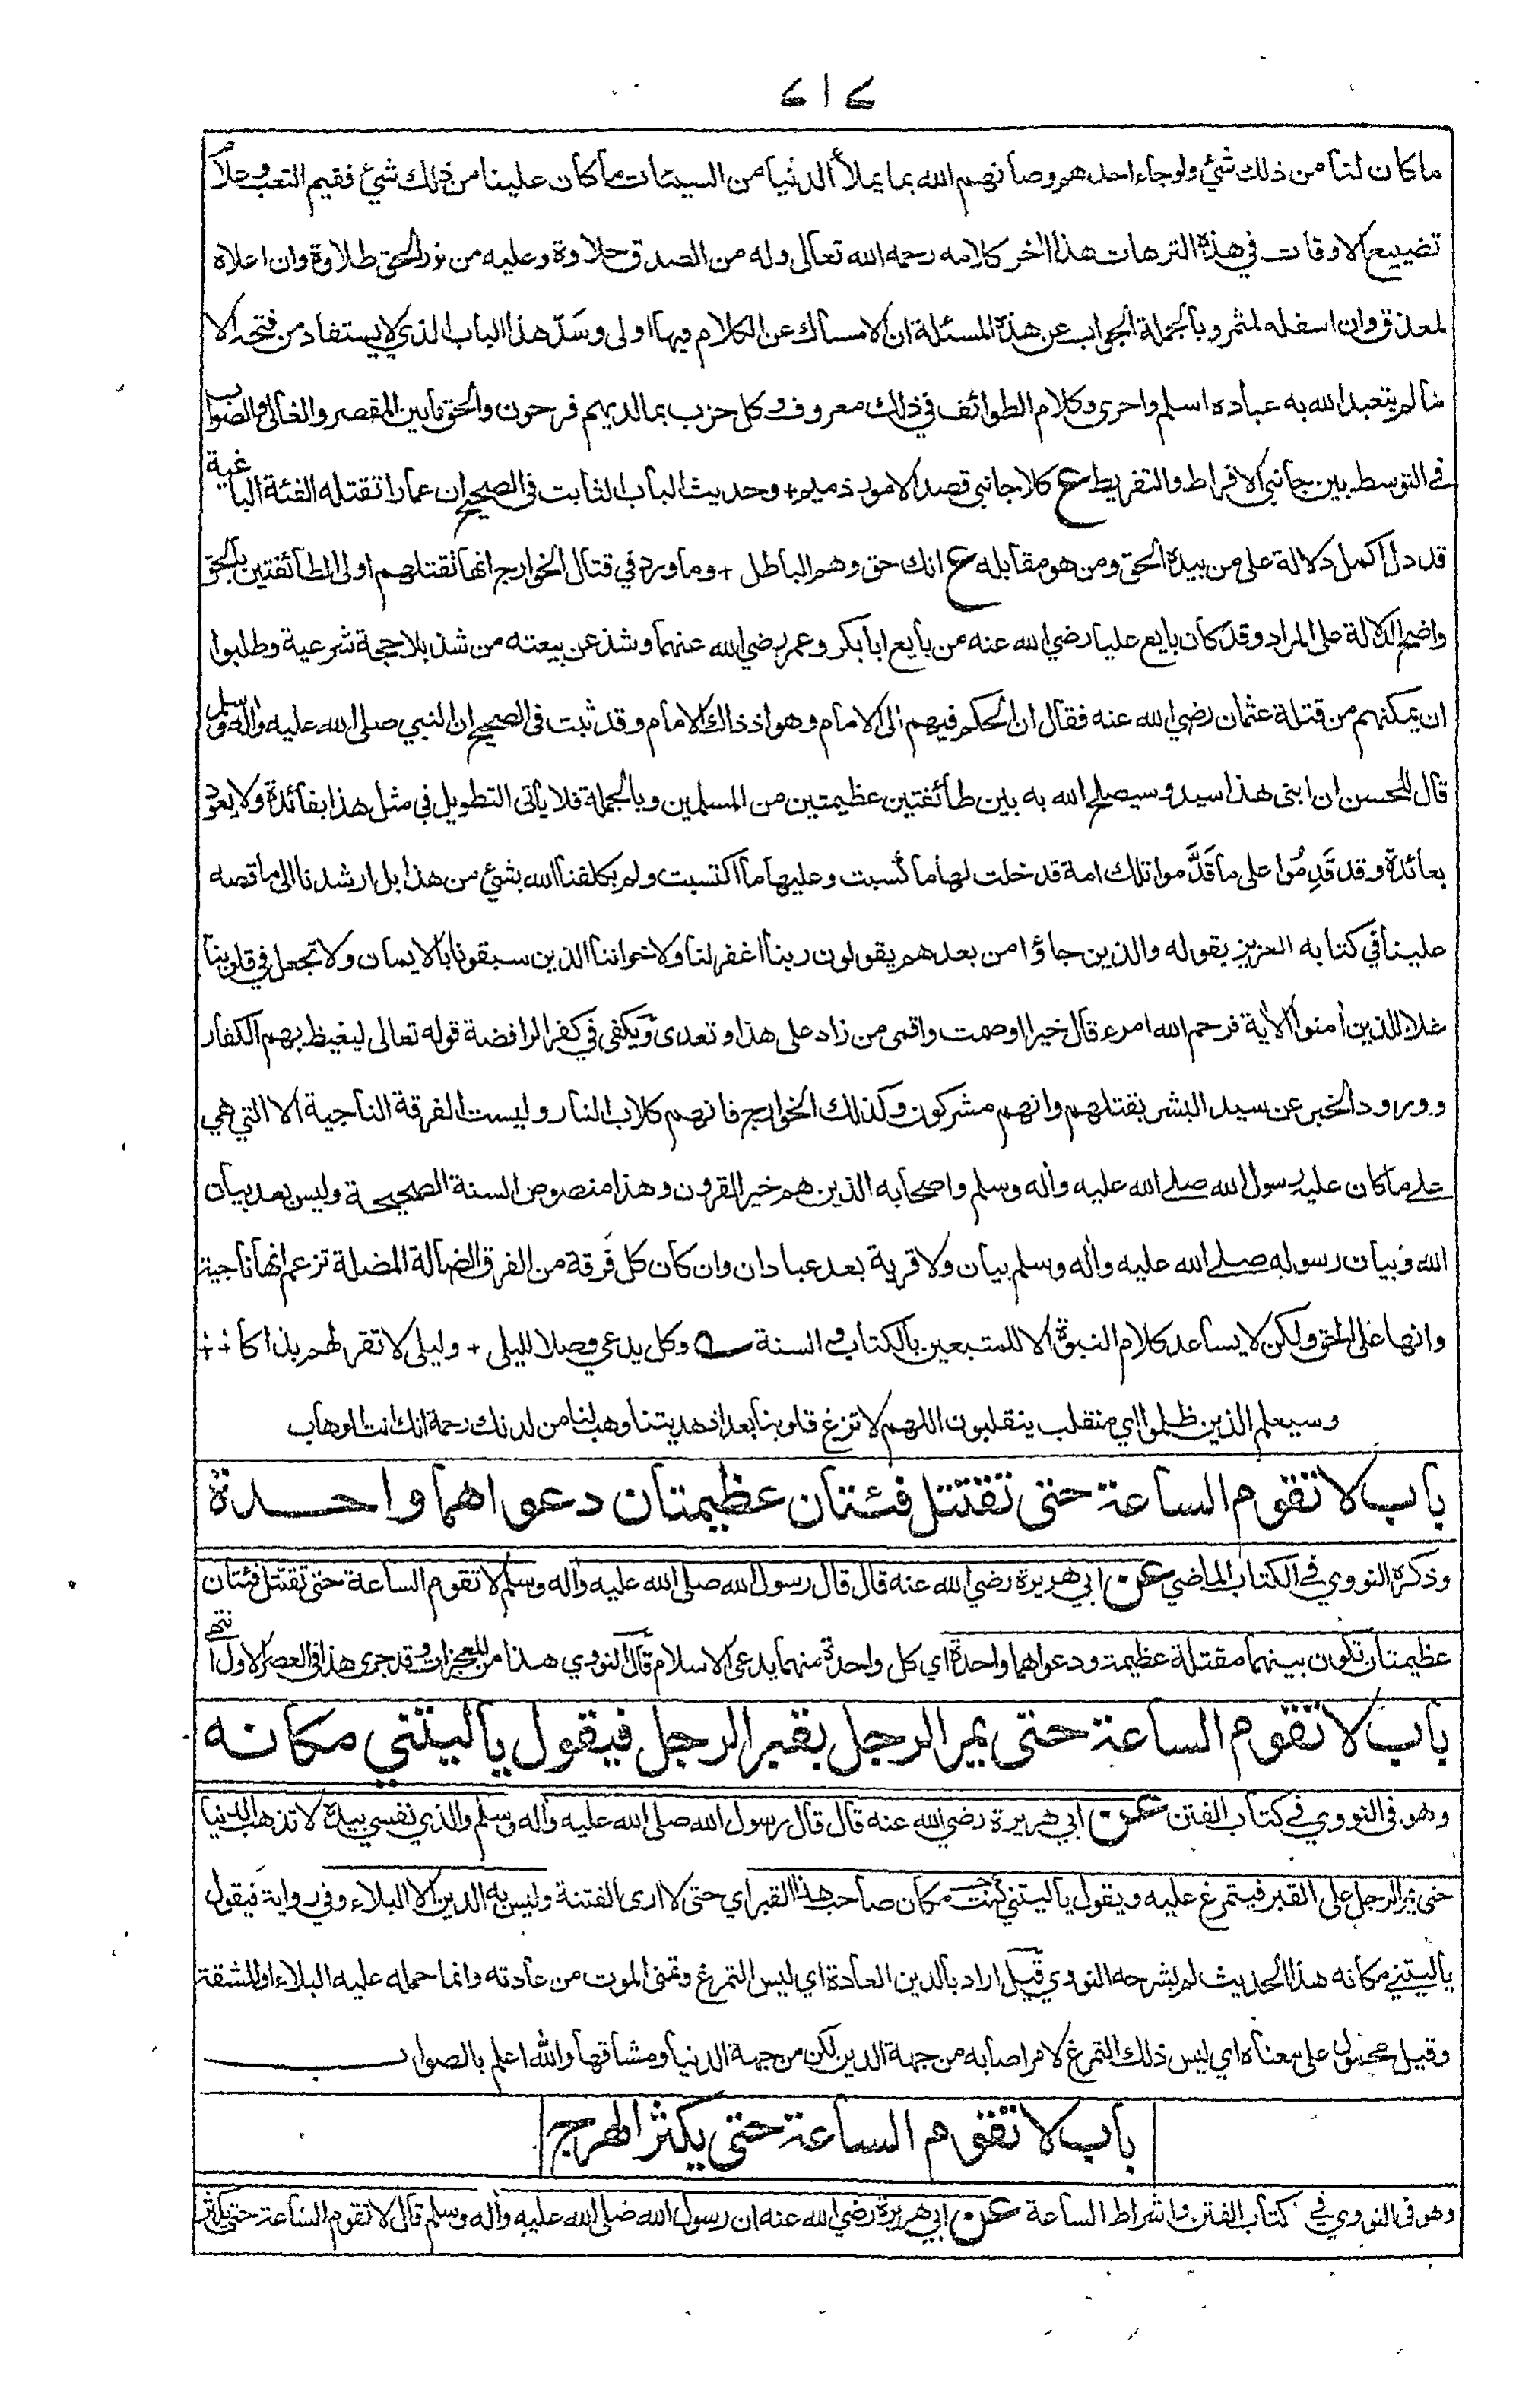 ما كان لنا من ذلك شئ ولو جاء احدهم وصانهم الله بما يملأ الدنيا من السيئات ما كان علينا من ذلك شئ ففيم التعب وعلام
تضييع الاوقات في هذه الترهات هذا اخر كلامه رحمه الله تعالى وله من الصدق حلاوة وعليه من نور الحق طلاوة وان اعلاه
لمعذق وان اسفله لمثمر وبالجملة الجواب عن هذه المسئلة ان الامساك عن الكلام فيها اولى وسَدّ هذا الباب الذي لا يستفاد من فتحه الا
ما لم يتعبد الله به عباده اسلم واحرى وكلام الطوائف في ذلك معروف وكل حزب بما لديهم فرحون والحق ما بين المقصر والغالى والصواب
في التوسط بين جانبي الافراط والتفريط ع كلا جانبي قصد الامور ذميم + وحديث الباب الثابت في الصحيح ان عمارا تقتله الفئة الباغية
قد دل اكمل دلالة على من بيده الحق ومن هو مقابله ع انك حق وهم الباطل + وما ورد في قتال الخوارج انها تقتلهم اولى الطائفتين بالحق
واضح الدلالة على المراد وقد كان بايع عليا رضي الله عنه من بايع ابا بكر وعمر رضي الله عنهما وشذ عن بيعته من شذ بلا حجة شرعية وطلبوا
ان يمكنهم من قتلة عثمان رضي الله عنه فقال ان الحكم فيهم الى الامام وهو اذ ذاك الامام وقد ثبت في الصحيح ان النبي صلى الله عليه واله وسلم
قال للحسن ان ابنى هذا سيد وسيصلح الله به بين طائفتين عظيمتين من المسلمين وبالجملة فلا يأتى التطويل في مثل هذا بفائدة ولا يعود
بعائدة وقد قَدِمُوا على ما قَدَّموا تلك امة قد خلت لها ما كسبت وعليها ما اكتسبت ولم يكلفنا الله بشئ من هذا بل ارشدنا الى ما قصه
علينا في كتابه العزيز بقوله والذين جاؤا من بعدهم يقولون ربنا اغفر لنا ولاخواننا الذين سبقونا بالايمان ولا تجعل في قلوبنا
غلا للذين امنوا الاية فرحم الله امرء قال خيرا او صمت واقمى من زاد على هذا وتعدى ويكفى في كفر الرافضة قوله تعالى ليغيظ بهم الكفار
وورود الخبر عن سيد البشر بقتلهم وانهم مشركون وكذلك الخوارج فانهم كلاب النار وليست الفرقة الناجية الا التي هي
على ما كان عليه رسول الله صلى الله عليه واله وسلم واصحابه الذين هم خير القرون وهذا منصوص السنة الصحيحة وليس بعد بيان
الله وبيان رسوله صلى الله عليه واله وسلم بيان ولا قرية بعد عبادان وان كان كل فرقة من الفرق الضالة المضلة تزعم انها ناجية
وانها على الحق ولكن لا يساعد كلام النبوة الا للمتبعين بالكتاب والسنة وكل يدعي وصلا لليلى + وليلى لا تقر لهم بذاكا
وسيعلم الذين ظلموا اي منقلب ينقلبون اللهم لا تزغ قلوبنا بعد اذ هديتنا وهب لنا من لدنك رحمة انك انت الوهاب
باب لا تقوم الساعة حتى تقتتل فئتان عظيمتان دعواهما واحدة
وذكره النووي في الكتاب الماضي عن ابي هريرة رضي الله عنه قال قال رسول الله صلى الله عليه واله وسلم لا تقوم الساعة حتى تقتتل فئتان
عظيمتان تكون بينهما مقتلة عظيمة ودعواهما واحدة اي كل واحدة منهما يدعى الاسلام قال النووي هذا من المعجزات وقد جرى هذا في العصر الاول انتهى
باب لا تقوم الساعة حتى يمر الرجل بقبر الرجل فيقول يا ليتني مكانه
وهو في النووي في كتاب الفتن عن ابي هريرة رضي الله عنه قال قال رسول الله صلى الله عليه واله وسلم والذي نفسي بيده لا تذهب الدنيا
حتى يمر الرجل على القبر فيتمرغ عليه ويقول يا ليتني كنت مكان صاحب هذا القبر اي حتى لا ارى الفتنة وليس به الدين الا البلاء وفي رواية فيقول
يا ليتني مكانه هذا الحديث لم يشرحه النووي قيل اراد بالدين العادة اي ليس التمرغ وتمنى الموت من عادته وانما حمله عليه البلاء والمشقة
وقيل محمول على معناه اي ليس ذلك التمرغ لامر اصابه من جهة الدين لكن من جهة الدنيا ومشاقها والله اعلم بالصواب
باب لا تقوم الساعة حتى يكثر الهرج
وهو في النووي في كتاب الفتن واشراط الساعة عن ابي هريرة رضي الله عنه ان رسول الله صلى الله عليه واله وسلم قال لا تقوم الساعة حتى يكثر